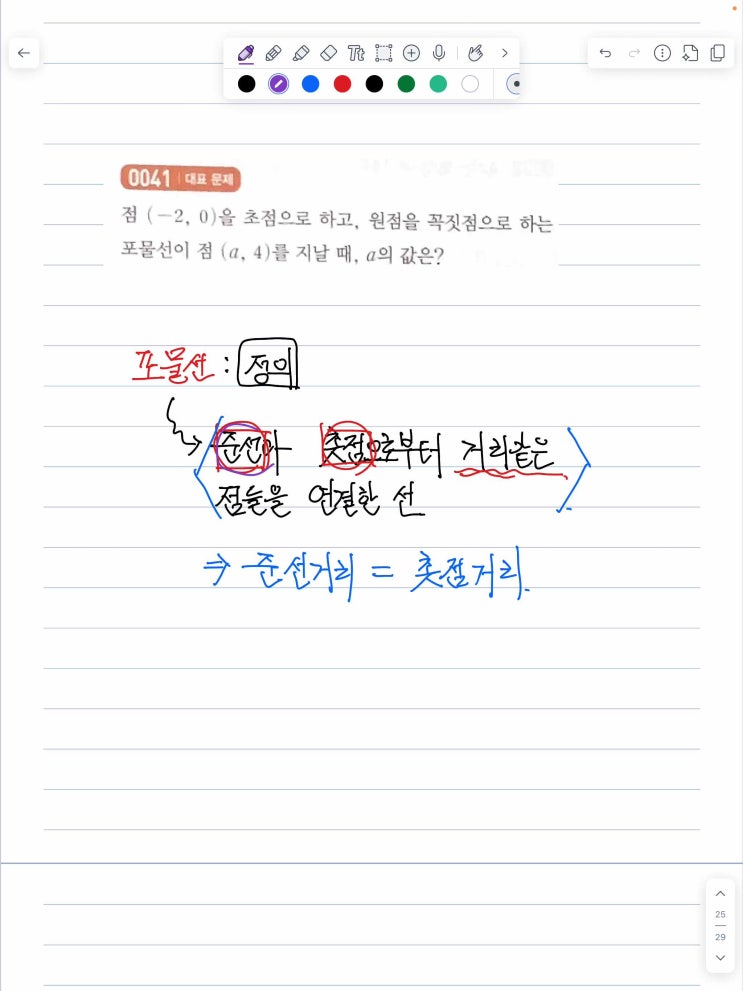 Tt
0041 대표 문제
점 (−2, 0)을 초점으로 하고, 원점을 꼭짓점으로 하는
포물선이 점 (a, 4)를 지날 때, a의 값은?
포물선 : 정의
준선과 촛점으로부터 거리같은
점들을 연결한 선
⇒ 준선거리 = 촛점거리.
25
29